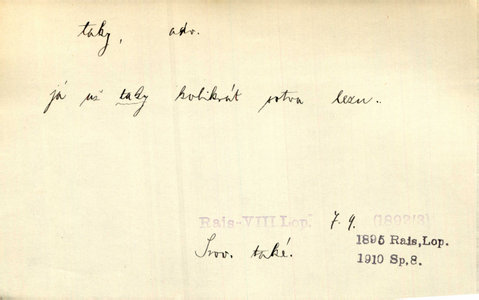 taky, adv.
já už taky kolikrát sotva lezu.
Rais-VIII Lop. 7.9. (1892/3)
Srov. také.
1895 Rais, Lop.
1910 Sp, 8.